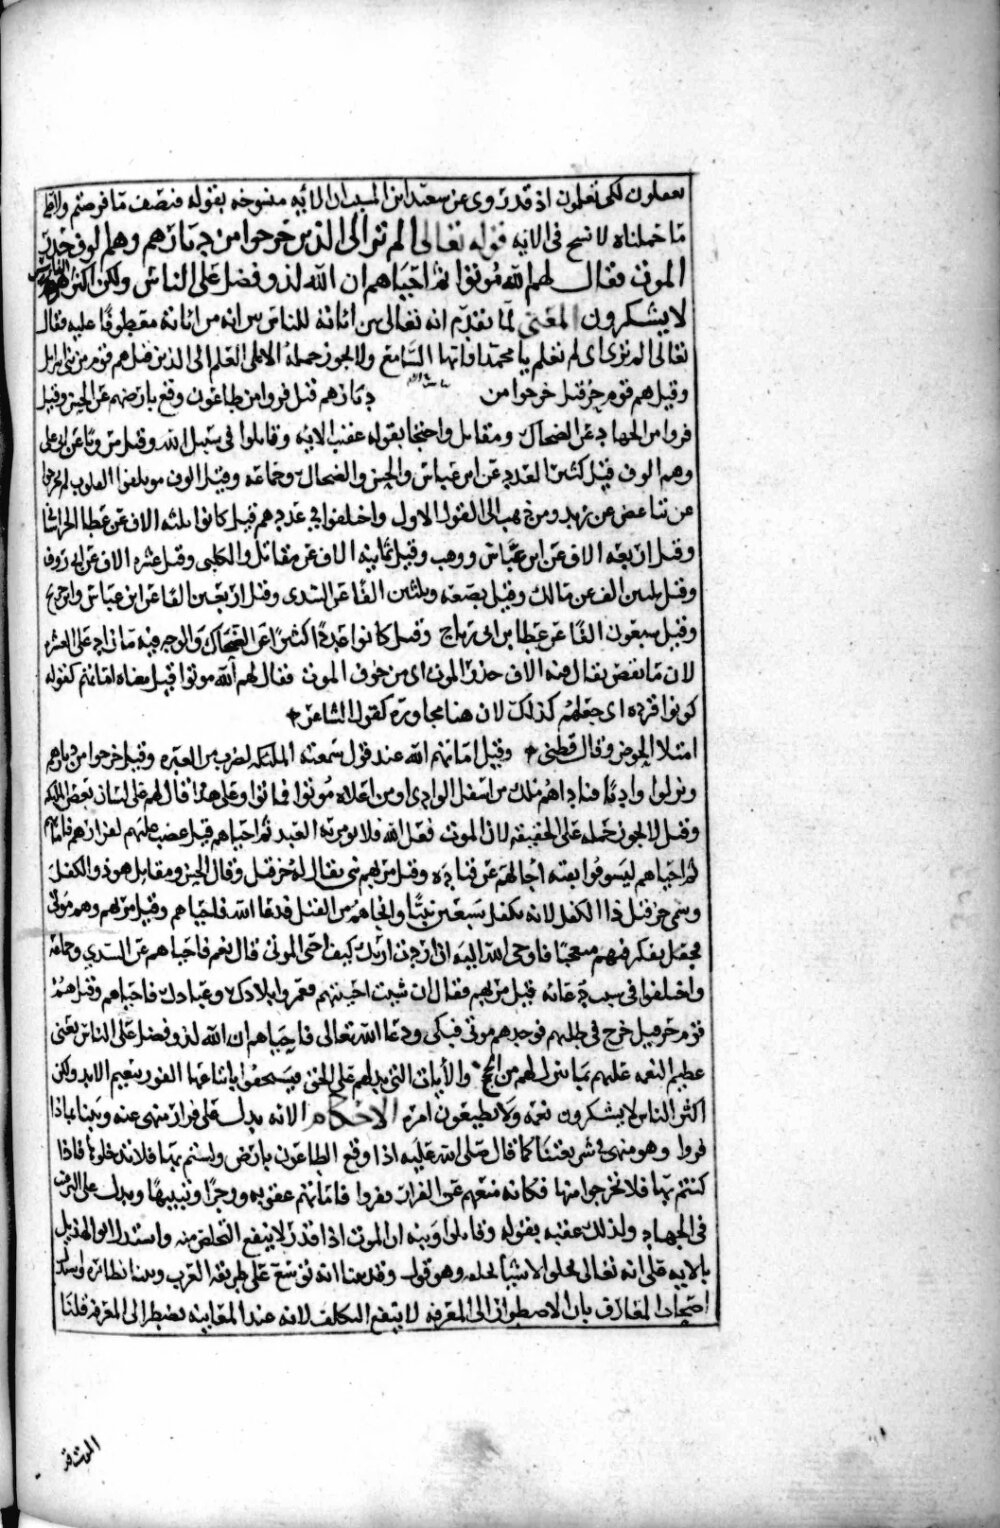 تعملون لكي تعملون اذ قد روى عن سعيد ابن المسيب ان الايه منسوخه بقوله فنصف ما فرضتم
ما حملناه لا نسخ في الايه قوله تعالى الم تر الى الذين خرجوا من ديارهم وهم الوف حذر
الموت فقال لهم الله موتوا ثم احياهم ان الله لذو فضل على الناس ولكن اكثر الناس
لا يشكرون المعنى لما تقدم انه تعالى بين اياته للناس بين انه من اياته معطوفا عليه فقال
تعالى الم تر اى لم تعلم يا محمد او ايها السامع ولا يجوز حمله الا على العلم الى الذين قيل هم قوم من بنى اسرايل
وقيل هم قوم حزقيل خرجوا من ديارهم قيل فروا من طاعون وقع بارضهم عن الحسن وقيل
فروا من الجهاد عن الضحاك ومقاتل واحتجا بقوله عقيب الايه وقاتلوا في سبيل الله وقيل
وهم الوف قيل كثير العدد عن ابن عباس والحسن والضحاك وجماعه وقيل الوف موتلفوا القلوب لم يخرجوا
عن تباغض عن ابن زيد ومن ذهب الى القول الاول واختلفوا في عددهم قيل كانوا ثلثه الاف عن عطا الخراسانى
وقيل اربعه الاف عن ابن عباس ووهب وقيل ثمانيه الاف عن مقاتل والكلبى وقيل عشره الاف عن ابى روق
وقيل ثلثين الف عن مالك وقيل بضعه وثلثين الفا عن السدى وقيل اربعين الفا عن ابن عباس وابن جريج
وقيل سبعون الفا عن عطا بن ابى رباح وقيل كانوا عددا كثيرا عن الضحاك والوجه فيه ما زاد على العشره
لان ما نقص يقال فيه الاف حذر الموت اى من خوف الموت فقال لهم الله موتوا قيل معناه اماتهم كقوله
كونوا قرده اى جعلهم كذلك لان هنا محاوره كقول الشاعر
امتلا الحوض وقال قطنى وقيل اماتهم الله عند قول سمعته الملئكه لضرب من العبره وقيل خرجوا من ديارهم
ونزلوا واديا فناداهم ملك من اسفل الوادى ومن اعلاه موتوا فماتوا وعلى هذا قال لهم على لسان بعض الملئكه
وقيل لا يجوز حمله على الحقيقه لان الموت فعل الله فلا يومر به العبد ثم احياهم قيل غضب عليهم لفرارهم فاماتهم
ثم احياهم ليستوفوا بقيه اجالهم عن قتاده وقيل مر بهم نبى يقال له حزقيل وقال الحسن ومقاتل هو ذو الكفل
وسمى حزقيل ذا الكفل لانه تكفل بسبعين نبيا وانجاهم من القتل فدعا الله فاحياهم وقيل مر بهم وهم موتى
فجعل يفكر فيهم متعجبا فاوحى الله اليه ان اردت اريتك كيف احى الموتى قال نعم فاحياهم عن السدي وجماعه
واختلفوا في سبب دعائه قيل مر بهم فقال ان شيت احييتهم فعمروا بلادك وعبادك فاحياهم وقيل هم
قوم حزقيل خرج في طلبهم فوجدهم موتى فبكى ودعا الله تعالى فاحياهم ان الله لذو فضل على الناس يعنى
عظيم النعم عليهم بما ينزل لهم من الحجج والايات التى يدلهم على الحق فيستحقوا باتباعها الفوز بنعيم الابد ولكن
اكثر الناس لا يشكرون نعمه ولا يطيعون امره الاحكام الايه تدل على فرار منهى عنه وبينا بماذا
فروا وهو منهى في شريعتنا كما قال صلى الله عليه اذا وقع الطاعون بارض ولستم بها فلا تدخلوها فاذا
كنتم بها فلا تخرجوا منها فكانه منعهم عن الفرار ففروا فاماتهم عقوبه وزجرا وتنبيها ويدل على الترغيب
في الجهاد ولذلك عقبه بقوله وقاتلوا وبين ان الموت اذا قدر لا ينفع التخلص منه واستدل ابو الهذيل
بالايه على انه تعالى يخلق الاشيا بخلقه وهو قول وقد بينا انه توسع على طريقه العرب وبينا نظائره واستدل
اصحاب المعارف بان الاضطرار الى المعرفه لا يمنع التكليف لانه عند المعاينه يضطر الى المعرفه قلنا